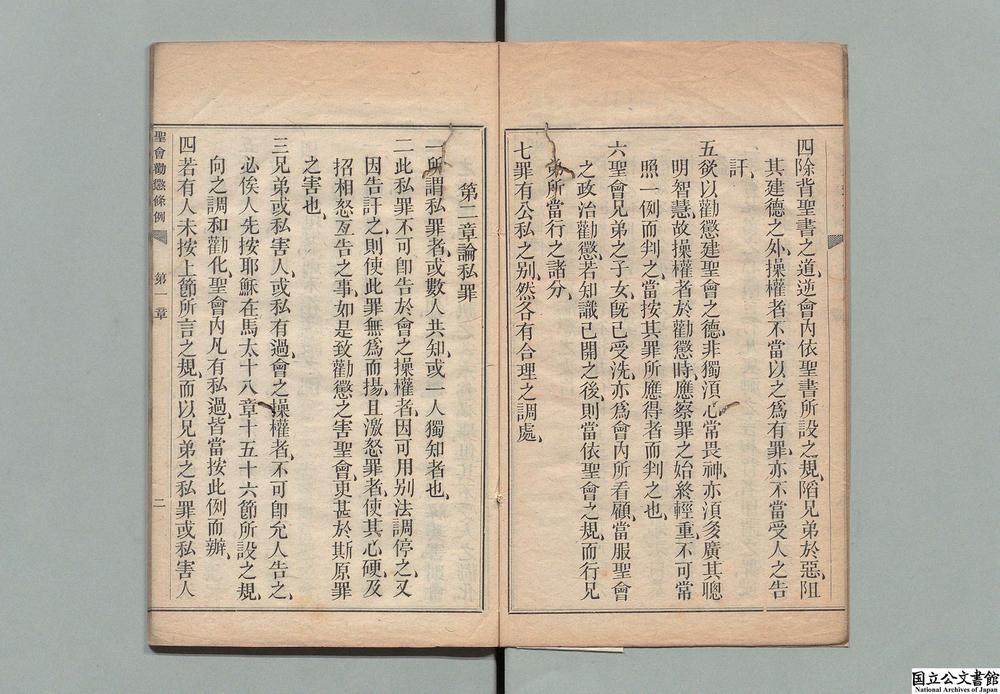 四除背聖書之道、逆會內依聖書所設之規、陷兄弟於惡、阻
其建德之外、操權者不當以之爲有罪、亦不當受人之告
訐、
五欲以勸懲建聖會之德、非獨須心常畏神、亦須多廣其聰
明智慧、故操權者於勸懲時、應察罪之始終輕重、不可常
照一例而判之、當按其罪所應得者而判之也、
六聖會兄弟之子女、旣已受洗、亦爲會內所看顧、當服聖會
之政治勸懲、若知識已開之後、則當依聖會之規、而行兄
弟所當行之諸分、
七罪有公私之別、然各有合理之調處、
第二章論私罪
一所謂私罪者、或數人共知、或一人獨知者也、
二此私罪不可卽告於會之操權者、因可用別法調停之、又
因告訐之、則使此罪無爲而揚、且激怒罪者、使其心硬、及
招相怒互告之事、如是致勸懲之害聖會、更甚於斯原罪
之害也、
三兄弟或私害人、或私有過、會之操權者、不可卽允人告之、
必俟人先按耶穌在馬太十八章十五十六節所設之規、
向之調和勸化、聖會內凡有私過、皆當按此例而辦、
四若有人未按上節所言之規、而以兄弟之私罪或私害人
聖會勸懲條例
第一章
二
国立公文書館
National Archives of Japan